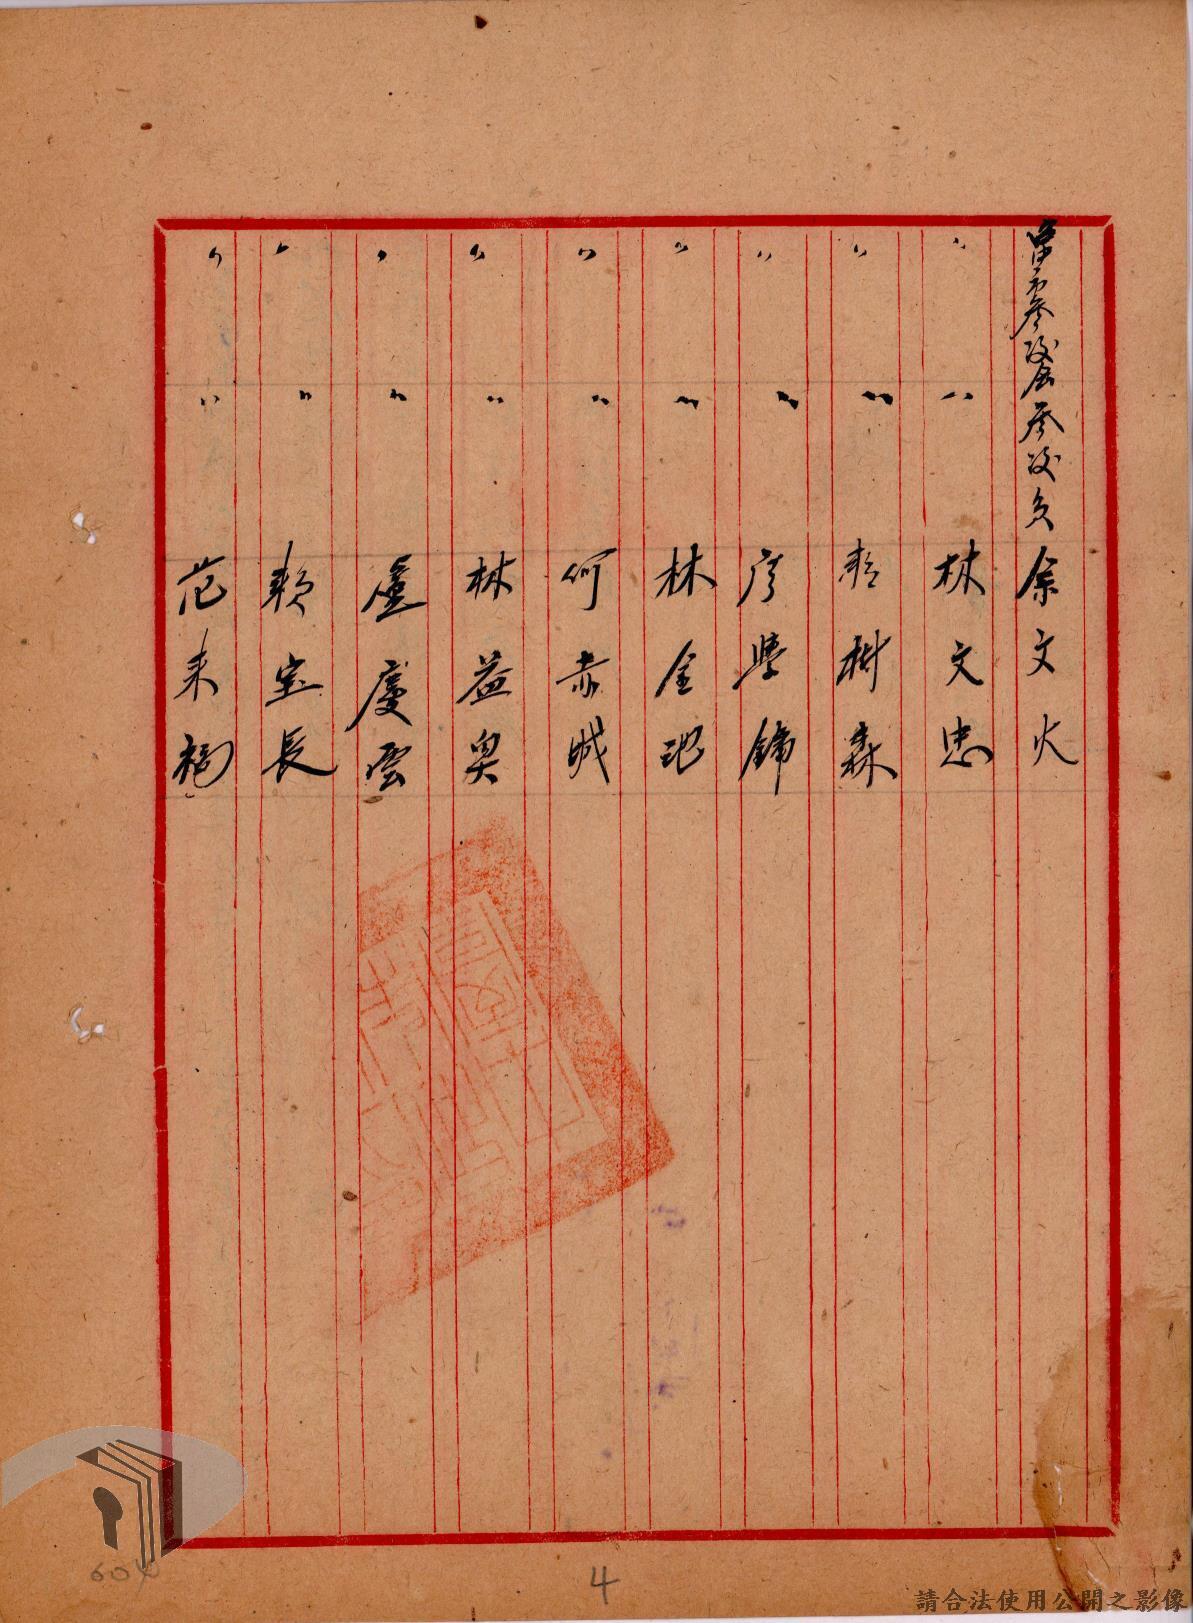 參政會參政員余文火
〃〃林文忠
〃〃賴樹森
〃〃彦學錦
〃〃林金池
〃〃何赤城
〃〃林益興
〃〃盧慶雲
〃〃賴宝長
〃〃范来福
4
請合法使用公開之影像